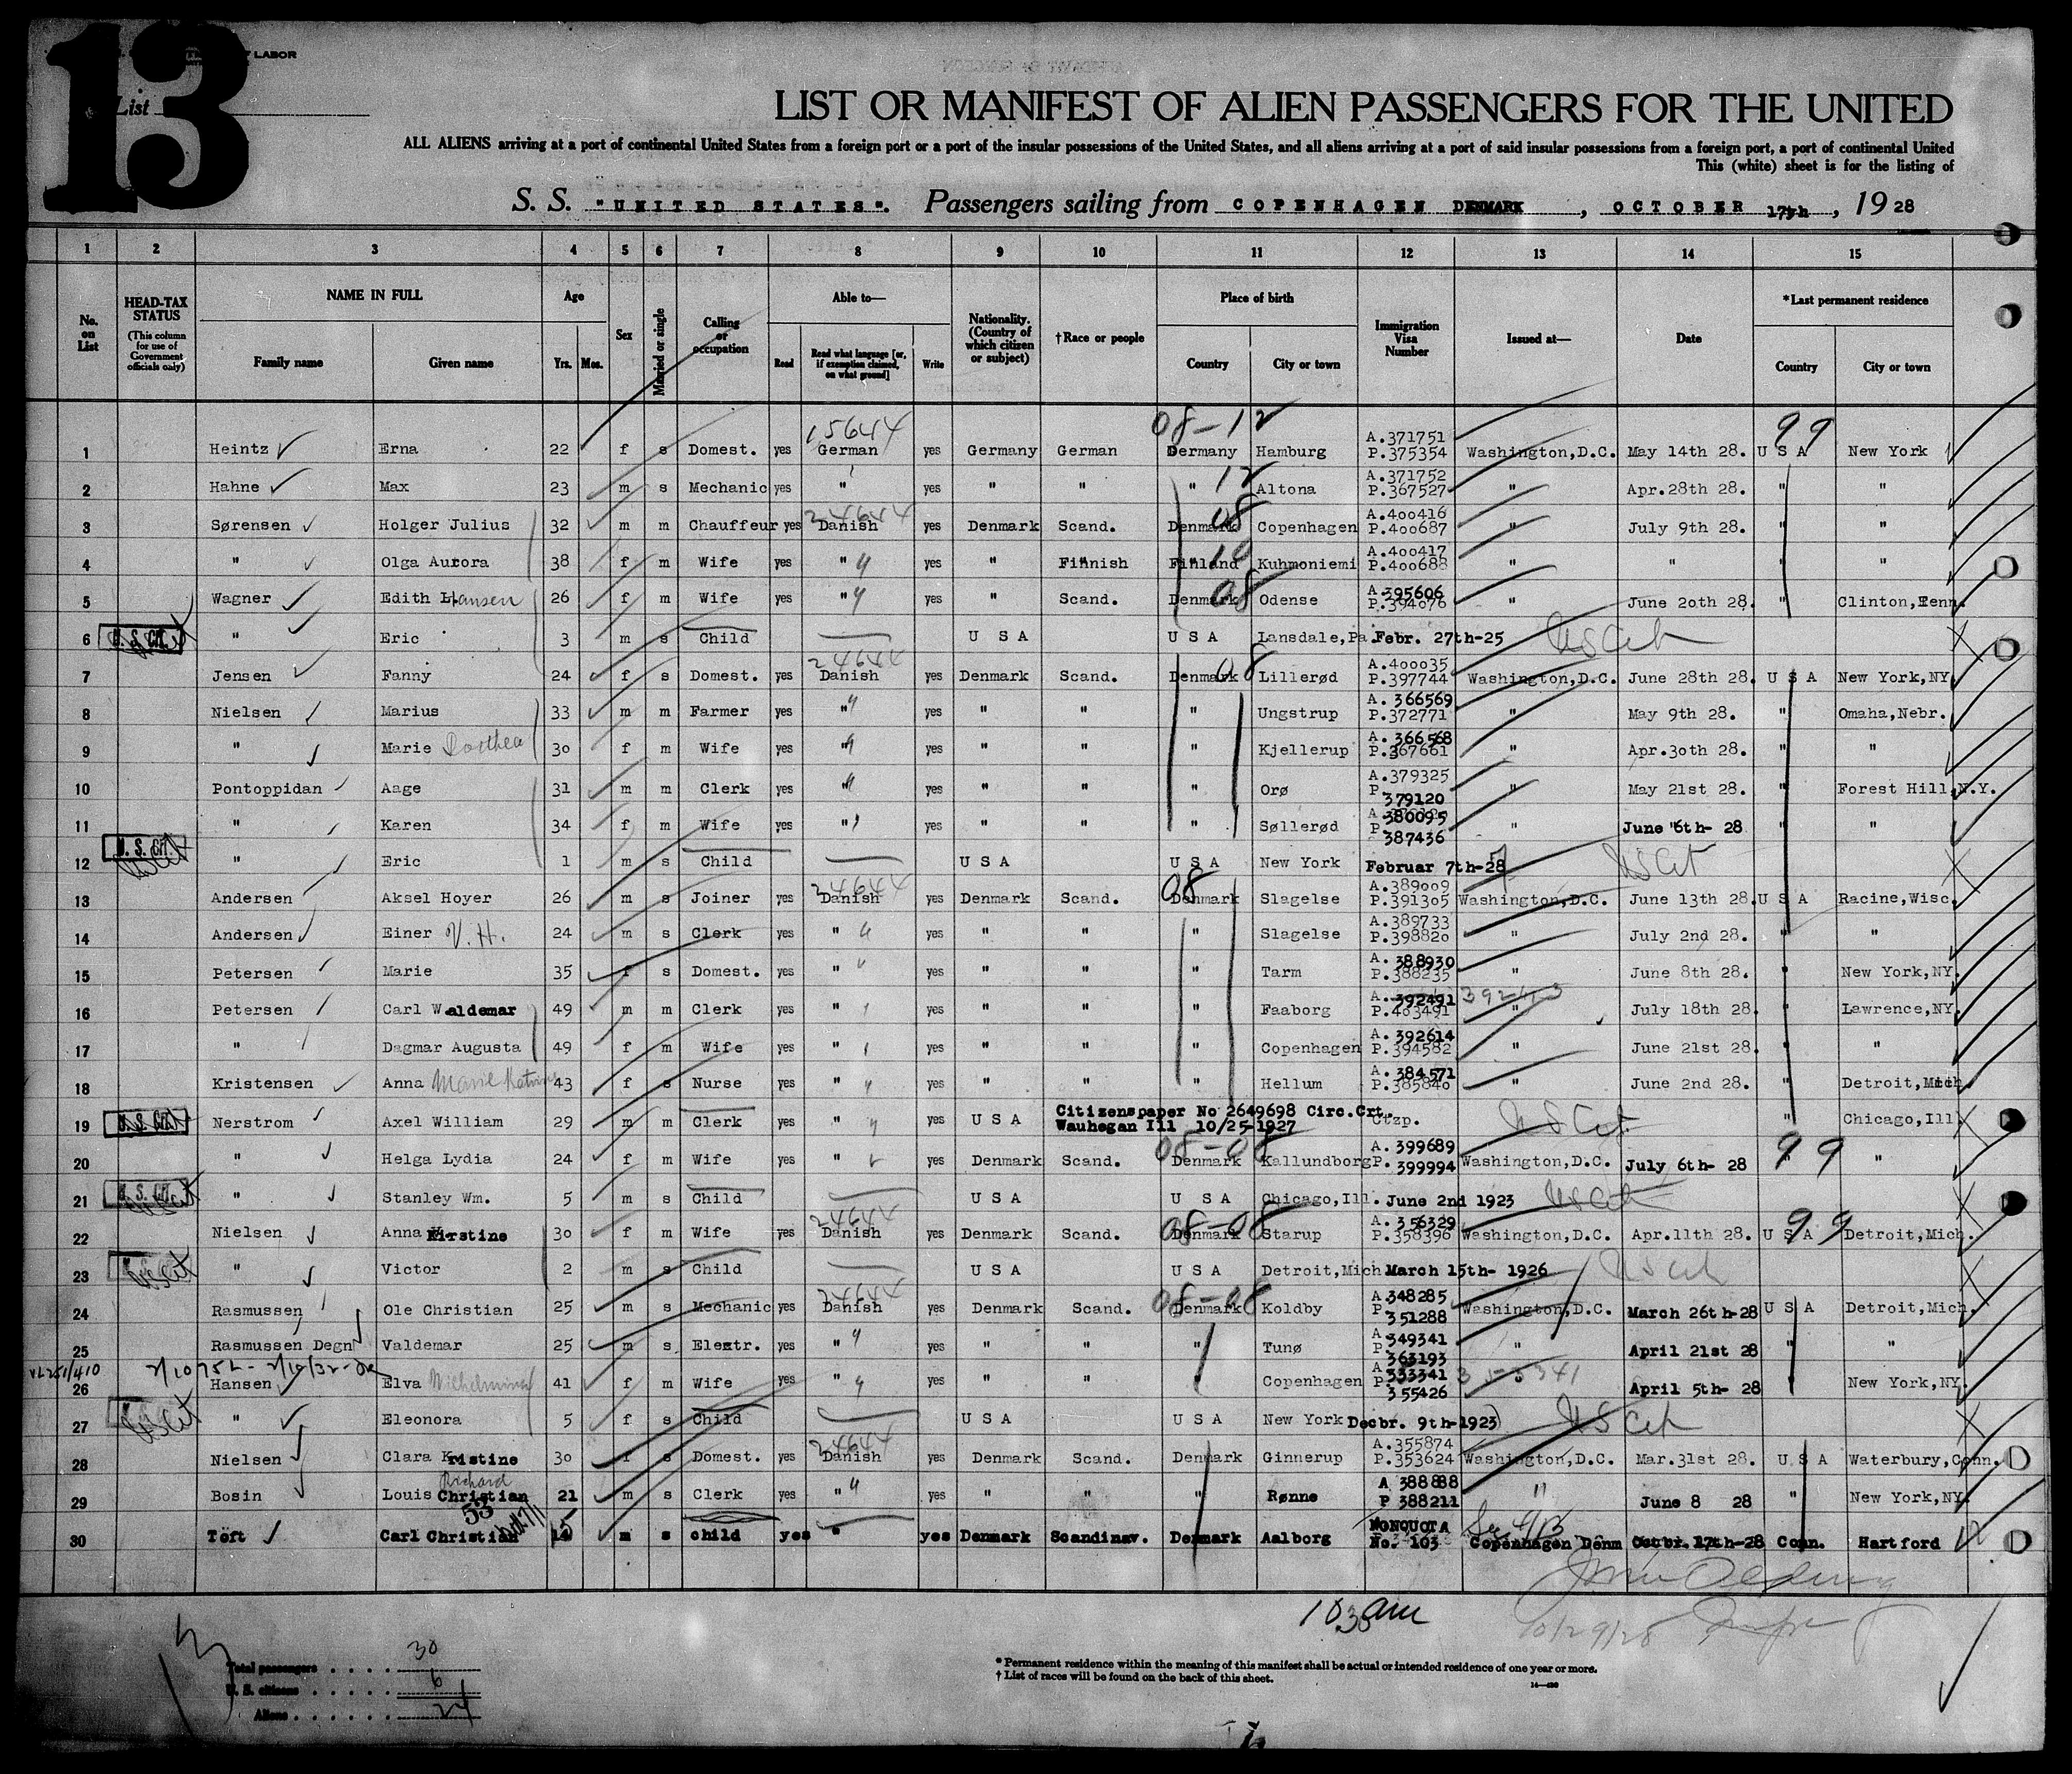 13
LABOR
List
LIST OR MANIFEST OF ALIEN PASSENGERS FOR THE UNITED
ALL ALIENS arriving at a port of continental United States from a foreign port or a port of the insular possessions of the United States, and all aliens arriving at a port of said insular possessions from a foreign port, a port of continental United
This (white) sheet is for the listing of
S. S. "UNITED STATES". Passengers sailing from COPENHAGEN DENMARK, OCTOBER 17th, 19 28
1 2 3 4 5 6 7 8 9 10 11 12 13 14 15
No. on List
HEAD-TAX STATUS (This column for use of Government officials only)
NAME IN FULL Family name Given name
Age Yrs. Mos.
Sex
Married or single
Calling or occupation
Able to— Read Read what language [or, if exemption claimed, on what ground] Write
Nationality. (Country of which citizen or subject)
†Race or people
Place of birth Country City or town
Immigration Visa Number
Issued at—
Date
*Last permanent residence Country City or town
15644 08-12 99
1 Heintz Erna 22 f s Domest. yes German yes Germany German Germany Hamburg A.371751 P.375354 Washington,D.C. May 14th 28. U S A New York
2 Hahne Max 23 m s Mechanic yes " yes " " " 12 Altona A.371752 P.367527 " Apr.28th 28. " "
3 Sørensen Holger Julius 32 m m Chauffeur yes 24644 Danish yes Denmark Scand. Denmark 08 Copenhagen A.400416 P.400687 " July 9th 28. " "
4 " Olga Aurora 38 f m Wife yes " yes " Finnish Finland 10 Kuhmoniemi A.400417 P.400688 " " " "
5 Wagner Edith Hansen 26 f m Wife yes " yes " Scand. Denmark 08 Odense A.395606 P.394076 " June 20th 28. " Clinton,Penn.
6 U. S. Cit. " Eric 3 m s Child U S A U S A Lansdale,Pa. Febr. 27th-25 US Cit
7 Jensen Fanny 24 f s Domest. yes 24644 Danish yes Denmark Scand. Denmark 08 Lillerød A.400035 P.397744 Washington,D.C. June 28th 28. U S A New York,NY.
8 Nielsen Marius 33 m m Farmer yes " yes " " " Ungstrup A. 366569 P.372771 " May 9th 28. " Omaha,Nebr.
9 " Marie Dorthea 30 f m Wife yes " yes " " " Kjellerup A. 366568 P.367661 " Apr.30th 28. " "
10 Pontoppidan Aage 31 m m Clerk yes " yes " " " Orø A.379325 P. 379120 " May 21st 28. " Forest Hill,N.Y.
11 " Karen 34 f m Wife yes " yes " " " Søllerød A. 380095 P 387436 " June 6th- 28 " "
12 U. S. Cit. " Eric 1 m s Child U S A U S A New York Februar 7th-28 US Cit
13 Andersen Aksel Hoyer 26 m s Joiner yes 24644 Danish yes Denmark Scand. 08 Denmark Slagelse A.389009 P.391305 Washington,D.C. June 13th 28. U S A Racine,Wisc.
14 Andersen Einer V. H. 24 m s Clerk yes " yes " " " Slagelse A.389733 P.398820 " July 2nd 28. " "
15 Petersen Marie 35 f s Domest. yes " yes " " " Tarm A. 388930 P.388235 " June 8th 28. " New York,NY.
16 Petersen Carl Waldemar 49 m m Clerk yes " yes " " " Faaborg A. 392491 P.403491 " July 18th 28. " Lawrence,NY.
17 " Dagmar Augusta 49 f m Wife yes " yes " " " Copenhagen A. 392614 P.394582 " June 21st 28. " "
18 Kristensen Anna Marie Katrine 43 f s Nurse yes " yes " " " Hellum A. 384571 P.385840 " June 2nd 28. " Detroit,Mich.
19 U. S. Cit. Nerstrom Axel William 29 m m Clerk yes " yes U S A Citizenspaper No 2649698 Circ.Crt. Wauhegan Ill 10/25-1927 Ctzp. US Cit. " Chicago,Ill.
20 " Helga Lydia 24 f m Wife yes " yes Denmark Scand. 08-08 Denmark Kallundborg A. 399689 P. 399994 Washington,D.C. July 6th- 28 99 " "
21 U. S. Cit. " Stanley Wm. 5 m s Child U S A U S A Chicago,Ill. June 2nd 1923 US Cit
22 Nielsen Anna Kirstine 30 f m Wife yes 24644 Danish yes Denmark Scand. 08-08 Denmark Starup A. 356329 P.358396 Washington,D.C. Apr.11th 28. U S A 99 Detroit,Mich.
23 US Cit " Victor 2 m s Child U S A U S A Detroit,Mich March 15th- 1926 US Cit
24 Rasmussen Ole Christian 25 m s Mechanic yes 24644 Danish yes Denmark Scand. 08-08 Denmark Koldby A.348285 P. 351288 Washington,D.C. March 26th-28 U S A Detroit,Mich.
25 Rasmussen Degn Valdemar 25 m s Elestr. yes " yes " " " Tunø A 349341 P 363193 " April 21st 28 " "
26 Hansen Elva Wilhelmina 41 f m Wife yes " yes " " " Copenhagen A P.333341 355426 April 5th- 28 " New York,NY.
27 US Cit " Eleonora 5 f s Child U S A U S A New York Decbr. 9th-1923 US Cit
28 Nielsen Clara Kristine 30 f s Domest. yes 24644 Danish yes Denmark Scand. Denmark Ginnerup A.355874 P.353624 Washington,D.C. Mar.31st 28. U S A Waterbury,Conn.
29 Bosin Louis Richard Christian 21 m s Clerk yes " yes " " " Rønne A 388888 P 388211 " June 8 28 " New York,NY.
30 Töft Carl Christian 15 m s child yes " yes Denmark Scandinav. Denmark Aalborg NONQUOTA No. 103 Copenhagen Denm Octbr. 17th-28 Conn. Hartford
10 30 am
10/29/28
Total passengers . . . . 30
U. S. citizens . . . . . 6
Aliens . . . . . . 24
* Permanent residence within the meaning of this manifest shall be actual or intended residence of one year or more.
† List of races will be found on the back of this sheet.